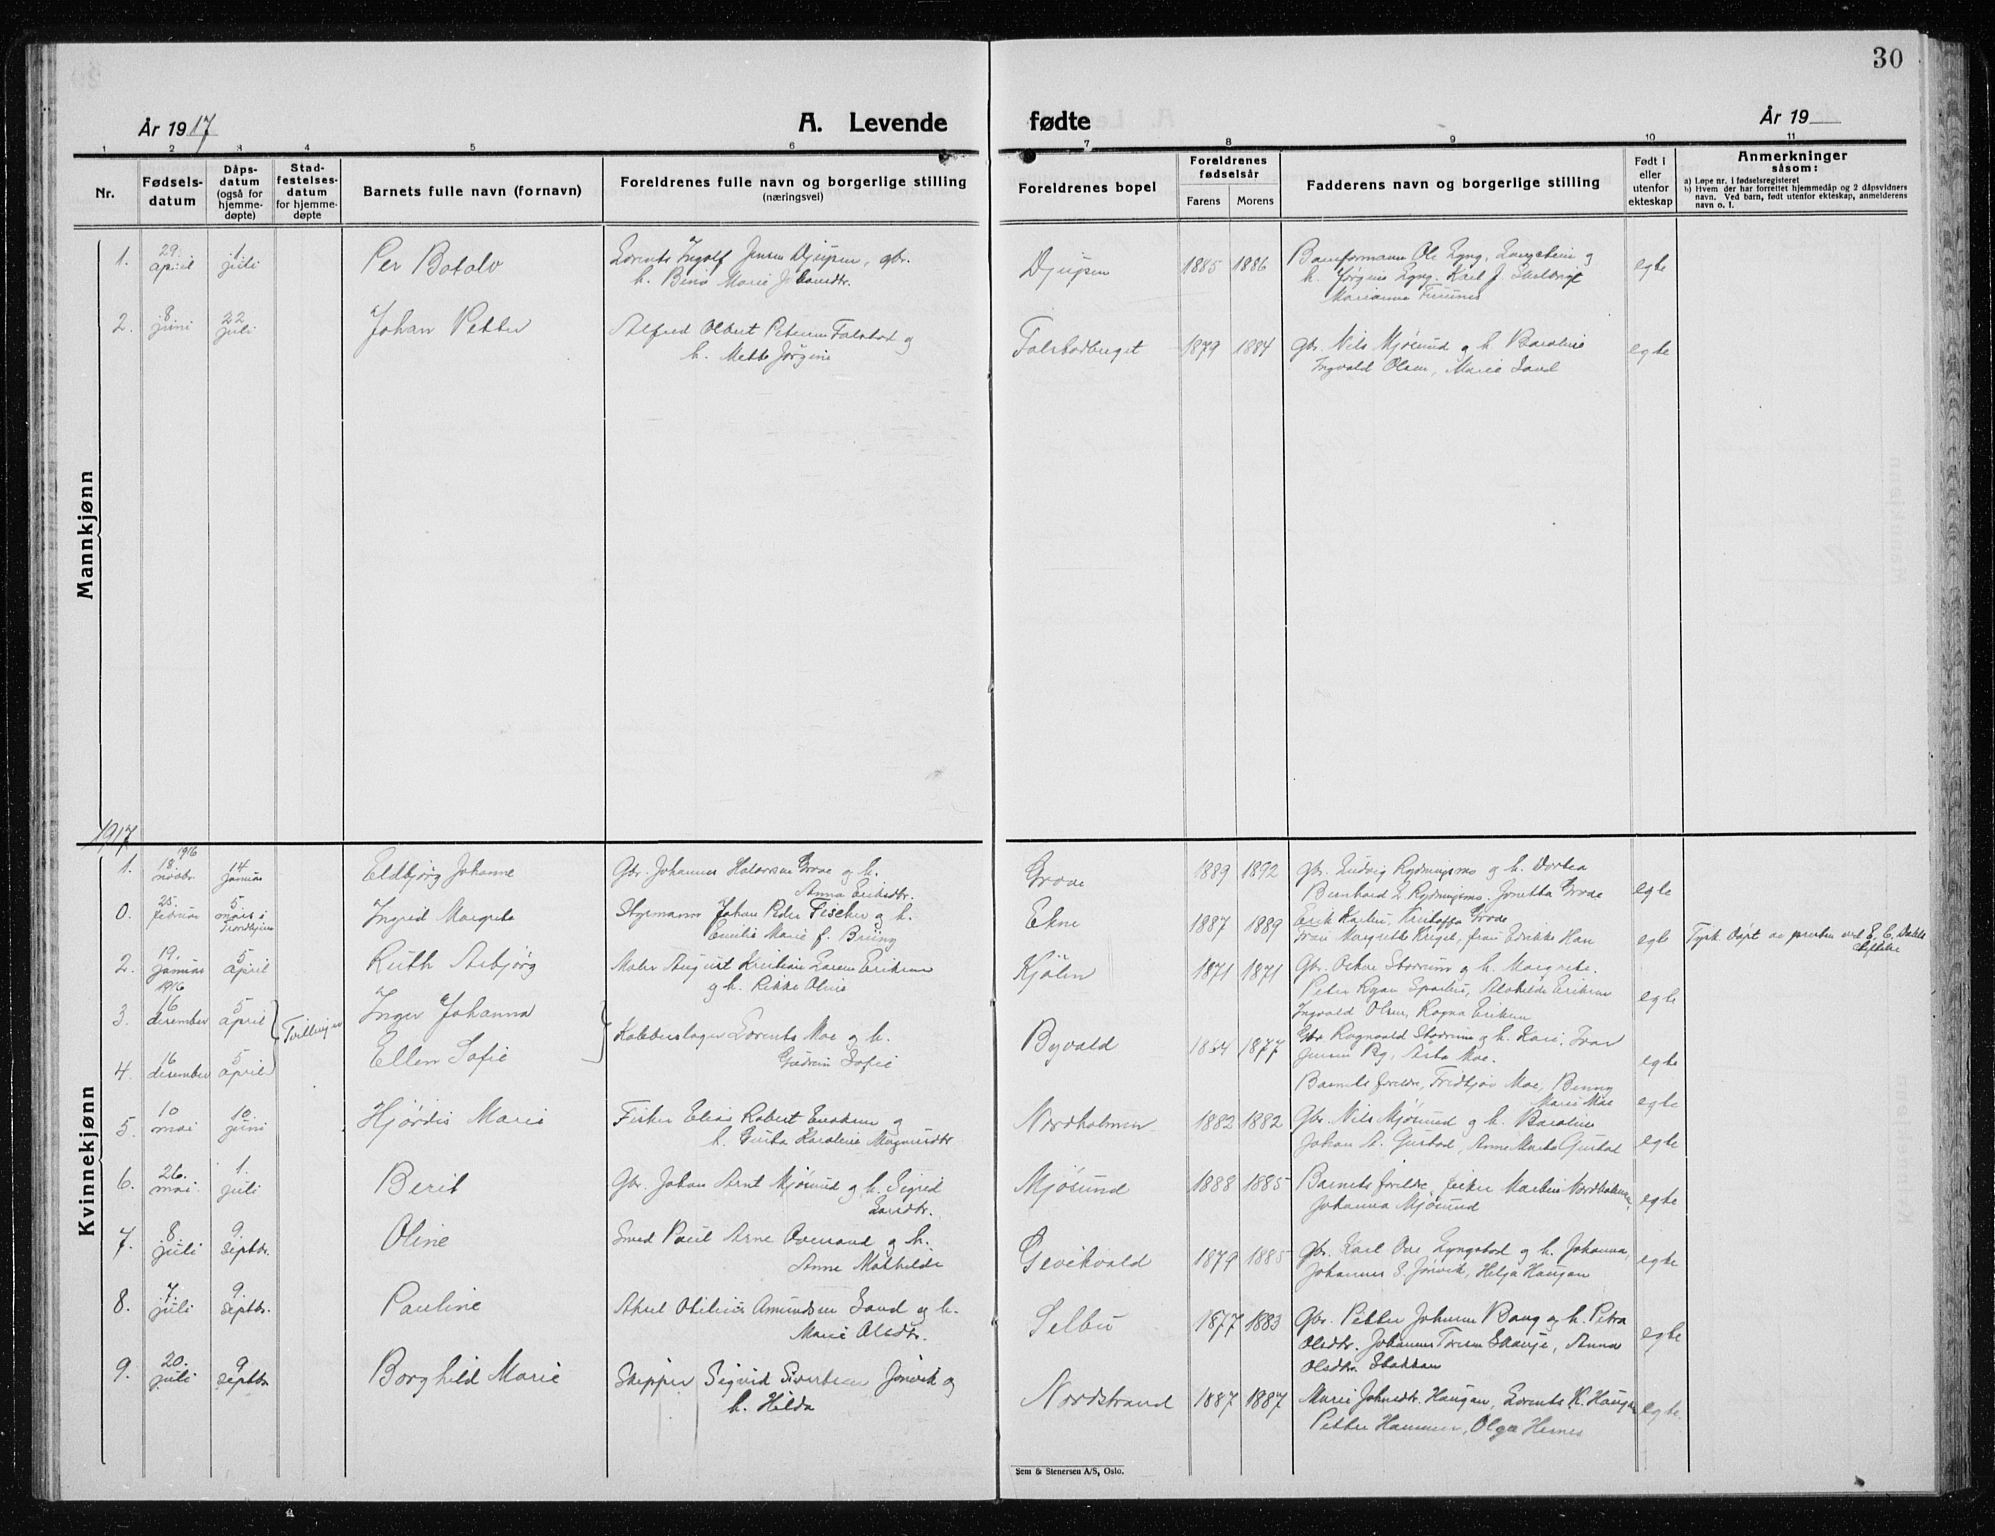 30
År 1917
A. Levende
fødte
År 19
1 2 3 4 5 6 7 8 9 10 11
Nr.
Fødsels-
datum
Dåps-
datum
(også for
hjemme-
døpte)
Stad-
festelses-
datum
for hjemme-
døpte
Barnets fulle navn (fornavn)
Foreldrenes fulle navn og borgerlige stilling
(næringsvei)
Foreldrenes bopel
Foreldrenes
fødselsår
Farens Morens
Fadderens navn og borgerlige stilling
Født i
eller
utenfor
ekteskap
Anmerkninger
såsom:
a) Løpe nr. i fødselsregisteret
b) Hvem der har forrettet hjemmedåp og 2 dåpsvidners
navn. Ved barn, født utenfor ekteskap, anmelderens
navn o. l.
Mannkjønn
1. 29. april 1. juli Per Botolv
Lorents Ingolf Jensen Djupen, gbr.
h. Bina Marie
Djupen 1885 1886
Ole Lyng, og
h. Jørgine Lyng. Karl J.
Marianna Furunes
egte
2. 8. juni 22 juli Johan Petter
Alfred Olbert Petersen Falstad og
h. Mette Jørgine
Falstadberget 1879 1884
gbr. Nils Mjøsund og h. Karoline
Ingvald Olsen, Marie Sand
egte
1917
Kvinnekjønn
1. 18. novbr. 1916 14 januar Eldbjørg Johanne
Gbr. Johannes Halvorsen Grove og h.
Anna Eriksdtr.
Grove 1889 1892
gbr. Ludvig Rydningsmo og h. Dortea
Bernhard L. Rydningsmo, Jonetta Grove
egte
0. 25. februar 5 mars i Trondhjem Ingrid Margrete
Styrmann Johan Peder Fischer og h.
Emilie Marie f. Bruing
Ekne 1887 1889
Erik Karlsen, Grove
Frau Margrethe Kriget, frau
egte
Tysk. Døpt av presten ved
2. 19. januar 5 april Ruth Asbjørg
Maler August Kristian Larsen Eriksen
og h. Rikke Oline
Kjølen 1871 1871
Gbr. Oskar Størrum og h. Margrete.
Peter Ryan Alvhilde Eriksen
Ingvald Olsen, Ragna Eriksen
egte
3. 1916 16 desember 5 april Tvillinger Inger Johanna
Kobberslager Lorents Moe og h.
Gudrun Sofie
Byvald 1877
Gbr Ragnvald Størrum og h. Kari, Ivar
Jensen By, Asta Moe.
egte
4. 16 desember 5 april Ellen Sofie
Barnets forelde, Fridtjov Moe, Benny
Marie Moe
egte
5. 10 mai 10. juni Hjørdis Marie
Fisker Elias Robert Eriksen og
h. Karoline Magnusdtr.
Nordholmen 1882 1882
Gbr. Nils Mjøsund og h. Karoline
Johan A. Gustad, Anne Marta Gustad
egte
6. 26. mai 1. juli Berit
Gbr. Johan Arnt Mjøsund og h. Sigrid
Larsdtr.
Mjøsund 1888 1885
Barnets forelde, fisker Martin Nordholmen,
Johanna Mjøsund
egte
7. 8. juli 9. septbr. Oline
Smed Paul Arne og h.
Anne Mathilde
Gevikvald 1879 1885
Gbr. Karl Ove Lyngstad og h. Johanna,
Johannes S. Jønvik, Helga Haugan
egte
8. 7. juli 9. septbr. Pauline
Aksel Otilius Amundsen Sand og h.
Marie Olsdtr.
Selbu 1877 1883
Gbr. Petter Johnsen Bang og h. Petra
Olsdtr. Johannes Skavje, Anna
Olsdtr. Stokkan
egte
9. 20. juli 9 septbr Borghild Marie
Skipper Sigvid Sivertsen Jønvik og
h. Hilda
Nordstrand 1887 1887
Marie Johnsdtr. Haugan, Lorents K. Haugan
Petter Hammer, Olga Hernes
egte.
Sem & Stenersen A/S, Oslo.